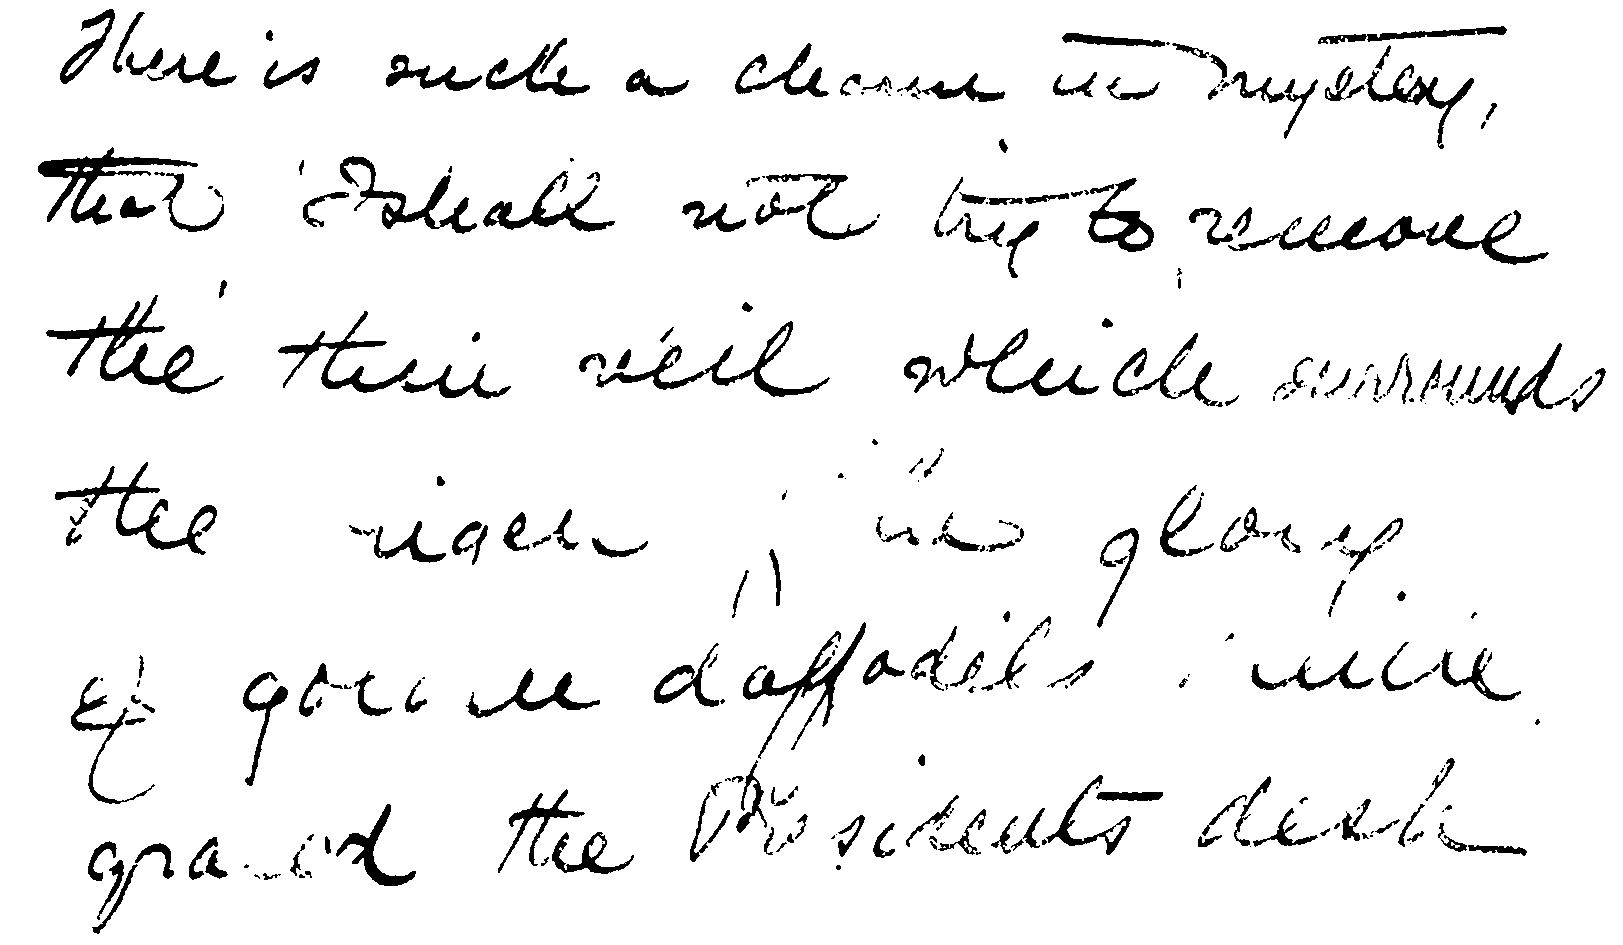 There is such a charm in mystery,
that I shall not try to remove
the thin veil which surrounds
the
of daffodils
graced the Presidents desk